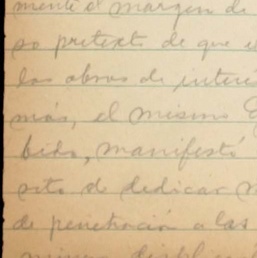 mente el margen de
so pretexto de que e
las obras de interé
más, el mismo
bido, manifestó
sito de dedicar
de penetración a las